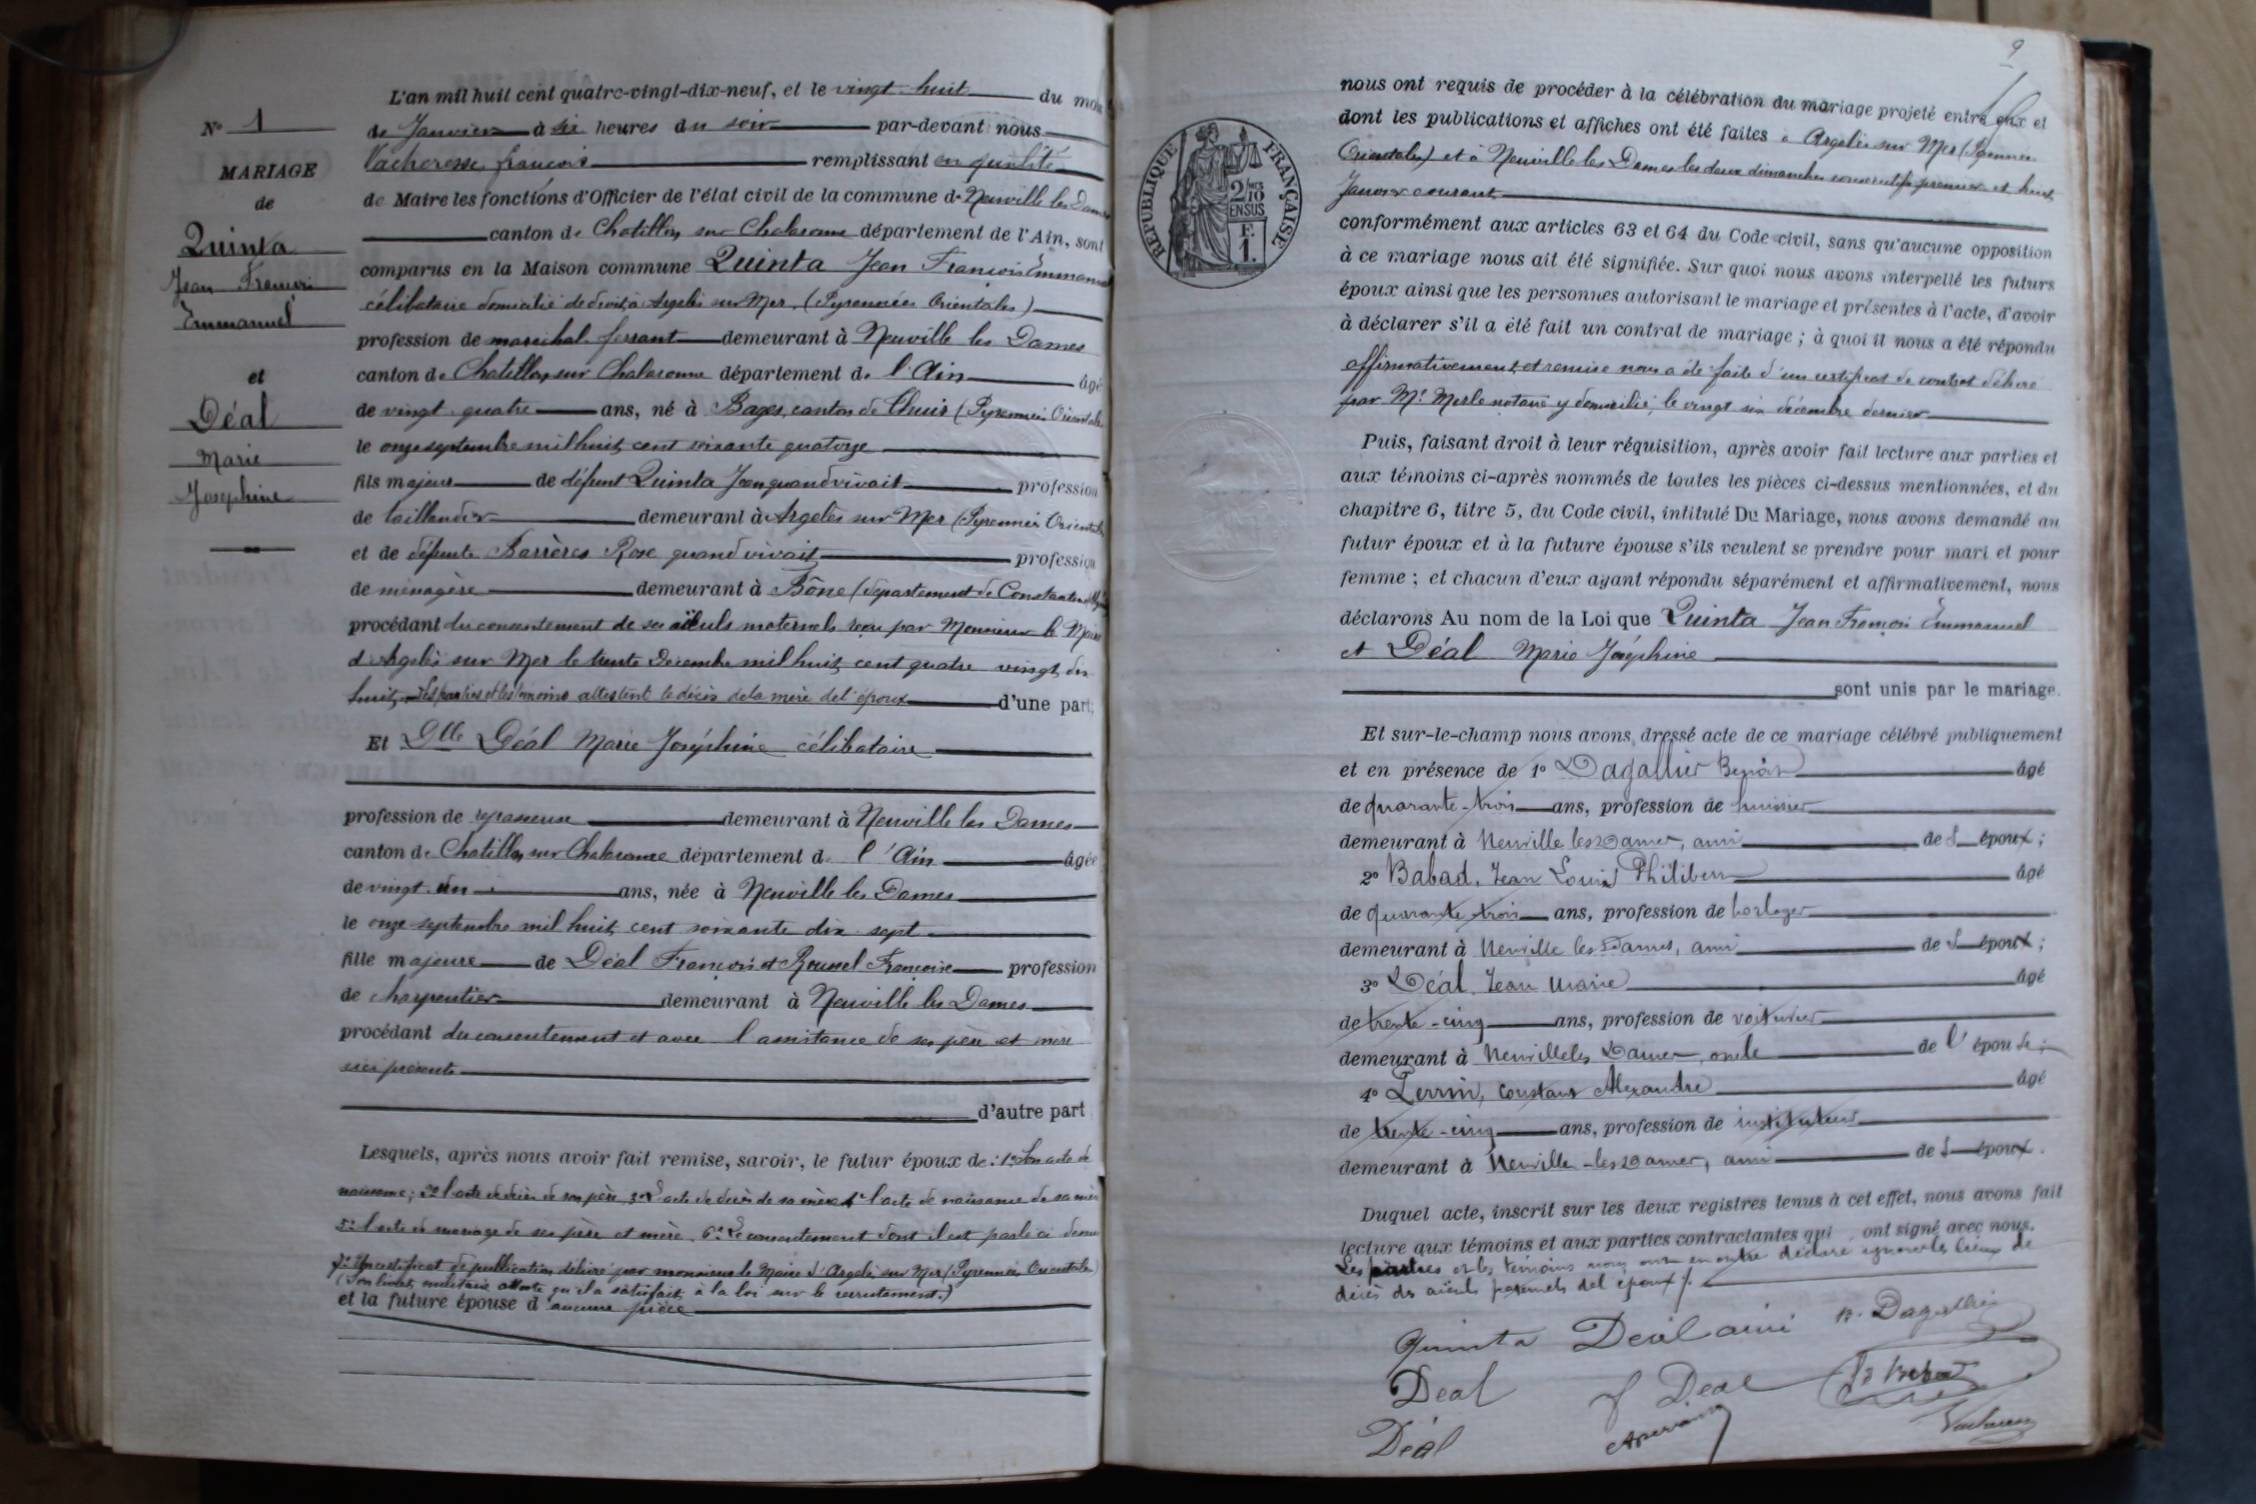 N° 1
MARIAGE
de
Quinta
Jean François
Emmanuel
et
Déal
Marie
Joséphine
L'an mil huit cent quatre-vingt-dix-neuf, et le vingt-huit du mois
de Janvier à six heures du soir par-devant nous
Vacheresse françois remplissant en qualité
de Maire les fonctions d'Officier de l'état civil de la commune de Neuville les Dames
canton de Chatillon sur Chalaronne département de l'Ain, sont
comparus en la Maison commune Quinta Jean François Emmanuel
célibataire domicilié de droit à Argelès sur Mer (Pyrennées Orientales)
profession de marechal ferrant demeurant à Neuville les Dames
canton de Chatillon sur Chalaronne département de l'Ain âgé
de vingt quatre ans, né à Bages, canton de Thuir (Pyrennées Orientales
le onze septembre mil huit cent soixante quatorze
fils majeur de défunt Quinta Jean quand vivait profession
de taillandier demeurant à Argelès sur Mer (Pyrennées Orientales
et de défunte Barrères Rose quand vivait profession
de ménagère demeurant à Bône (département de Constantine
procédant du consentement de ses aïeuls maternels reçu par Monsieur le Maire
d'Argelès sur Mer le trente Décembre mil huit cent quatre vingt dix
huit. Les parties et les témoins attestent le décès de la mère de l'époux d'une part;
Et Dlle Déal Marie Joséphine célibataire
profession de repasseuse demeurant à Neuville les Dames
canton de Chatillon sur Chalaronne département de l'Ain âgée
de vingt un ans, née à Neuville les Dames
le onze septembre mil huit cent soixante dix sept
fille majeure de Déal François et Roussel Françoise profession
de charpentier demeurant à Neuville les Dames
procédant du consentement et avec l'assistance de ses père et mère
ici présents
d'autre part
Lesquels, après nous avoir fait remise, savoir, le futur époux de: 1° Son acte de
naissance; 2° l'acte de décès de son père 3° L'acte de décès de sa mère 4° l'acte de naissance de sa mère
5° l'acte de mariage de ses père et mère. 6° Le consentement dont il est parlé ci dessus
7° Un certificat de publication délivré par monsieur le Maire d'Argelès sur Mer (Pyrennées Orientales)
(Son livret militaire atteste qu'il a satisfait à la loi sur le recrutement.)
et la future épouse d'aucune pièce
9
RÉPUBLIQUE FRANÇAISE
2/10 EN SUS
F.
1.
nous ont requis de procéder à la célébration du mariage projeté entre eux et
dont les publications et affiches ont été faites à Argelès sur Mer (Pyrennées
Orientales) et à Neuville les Dames les deux dimanches consécutifs premier et huit
Janvier courant
conformément aux articles 63 et 64 du Code civil, sans qu'aucune opposition
à ce mariage nous ait été signifiée. Sur quoi nous avons interpellé les futurs
époux ainsi que les personnes autorisant le mariage et présentes à l'acte, d'avoir
à déclarer s'il a été fait un contrat de mariage ; à quoi il nous a été répondu
affirmativement et remise nous a été faite d'un certificat de contrat délivré
par Me Merle notaire y domicilié, le vingt six décembre dernier
Puis, faisant droit à leur réquisition, après avoir fait lecture aux parties et
aux témoins ci-après nommés de toutes les pièces ci-dessus mentionnées, et du
chapitre 6, titre 5, du Code civil, intitulé Du Mariage, nous avons demandé au
futur époux et à la future épouse s'ils veulent se prendre pour mari et pour
femme ; et chacun d'eux ayant répondu séparément et affirmativement, nous
déclarons Au nom de la Loi que Quinta Jean François Emmanuel
et Déal Marie Joséphine
sont unis par le mariage.
Et sur-le-champ nous avons dressé acte de ce mariage célébré publiquement
et en présence de 1° Dagallier Benoît âgé
de quarante-trois ans, profession de huissier
demeurant à Neuville les Dames, ami de s époux ;
2° Babad, Jean Louis Philibert âgé
de quarante trois ans, profession de horloger
demeurant à Neuville les Dames, ami de s époux ;
3° Déal Jean Marie âgé
de trente-cinq ans, profession de voiturier
demeurant à Neuville les Dames, oncle de l'épouse ;
4° Perrin, Constant Alexandre âgé
de trente-cinq ans, profession de instituteur
demeurant à Neuville-les-Dames, ami de s époux.
Duquel acte, inscrit sur les deux registres tenus à cet effet, nous avons fait
lecture aux témoins et aux parties contractantes qui ont signé avec nous.
Les parties et les témoins nous ont en outre déclaré ignorer les lieux de
décès des aïeuls paternels de l'époux.
Quinta Déal ainé B. Dagallier
Déal f Déal
Déal CAperrin Vacheresse